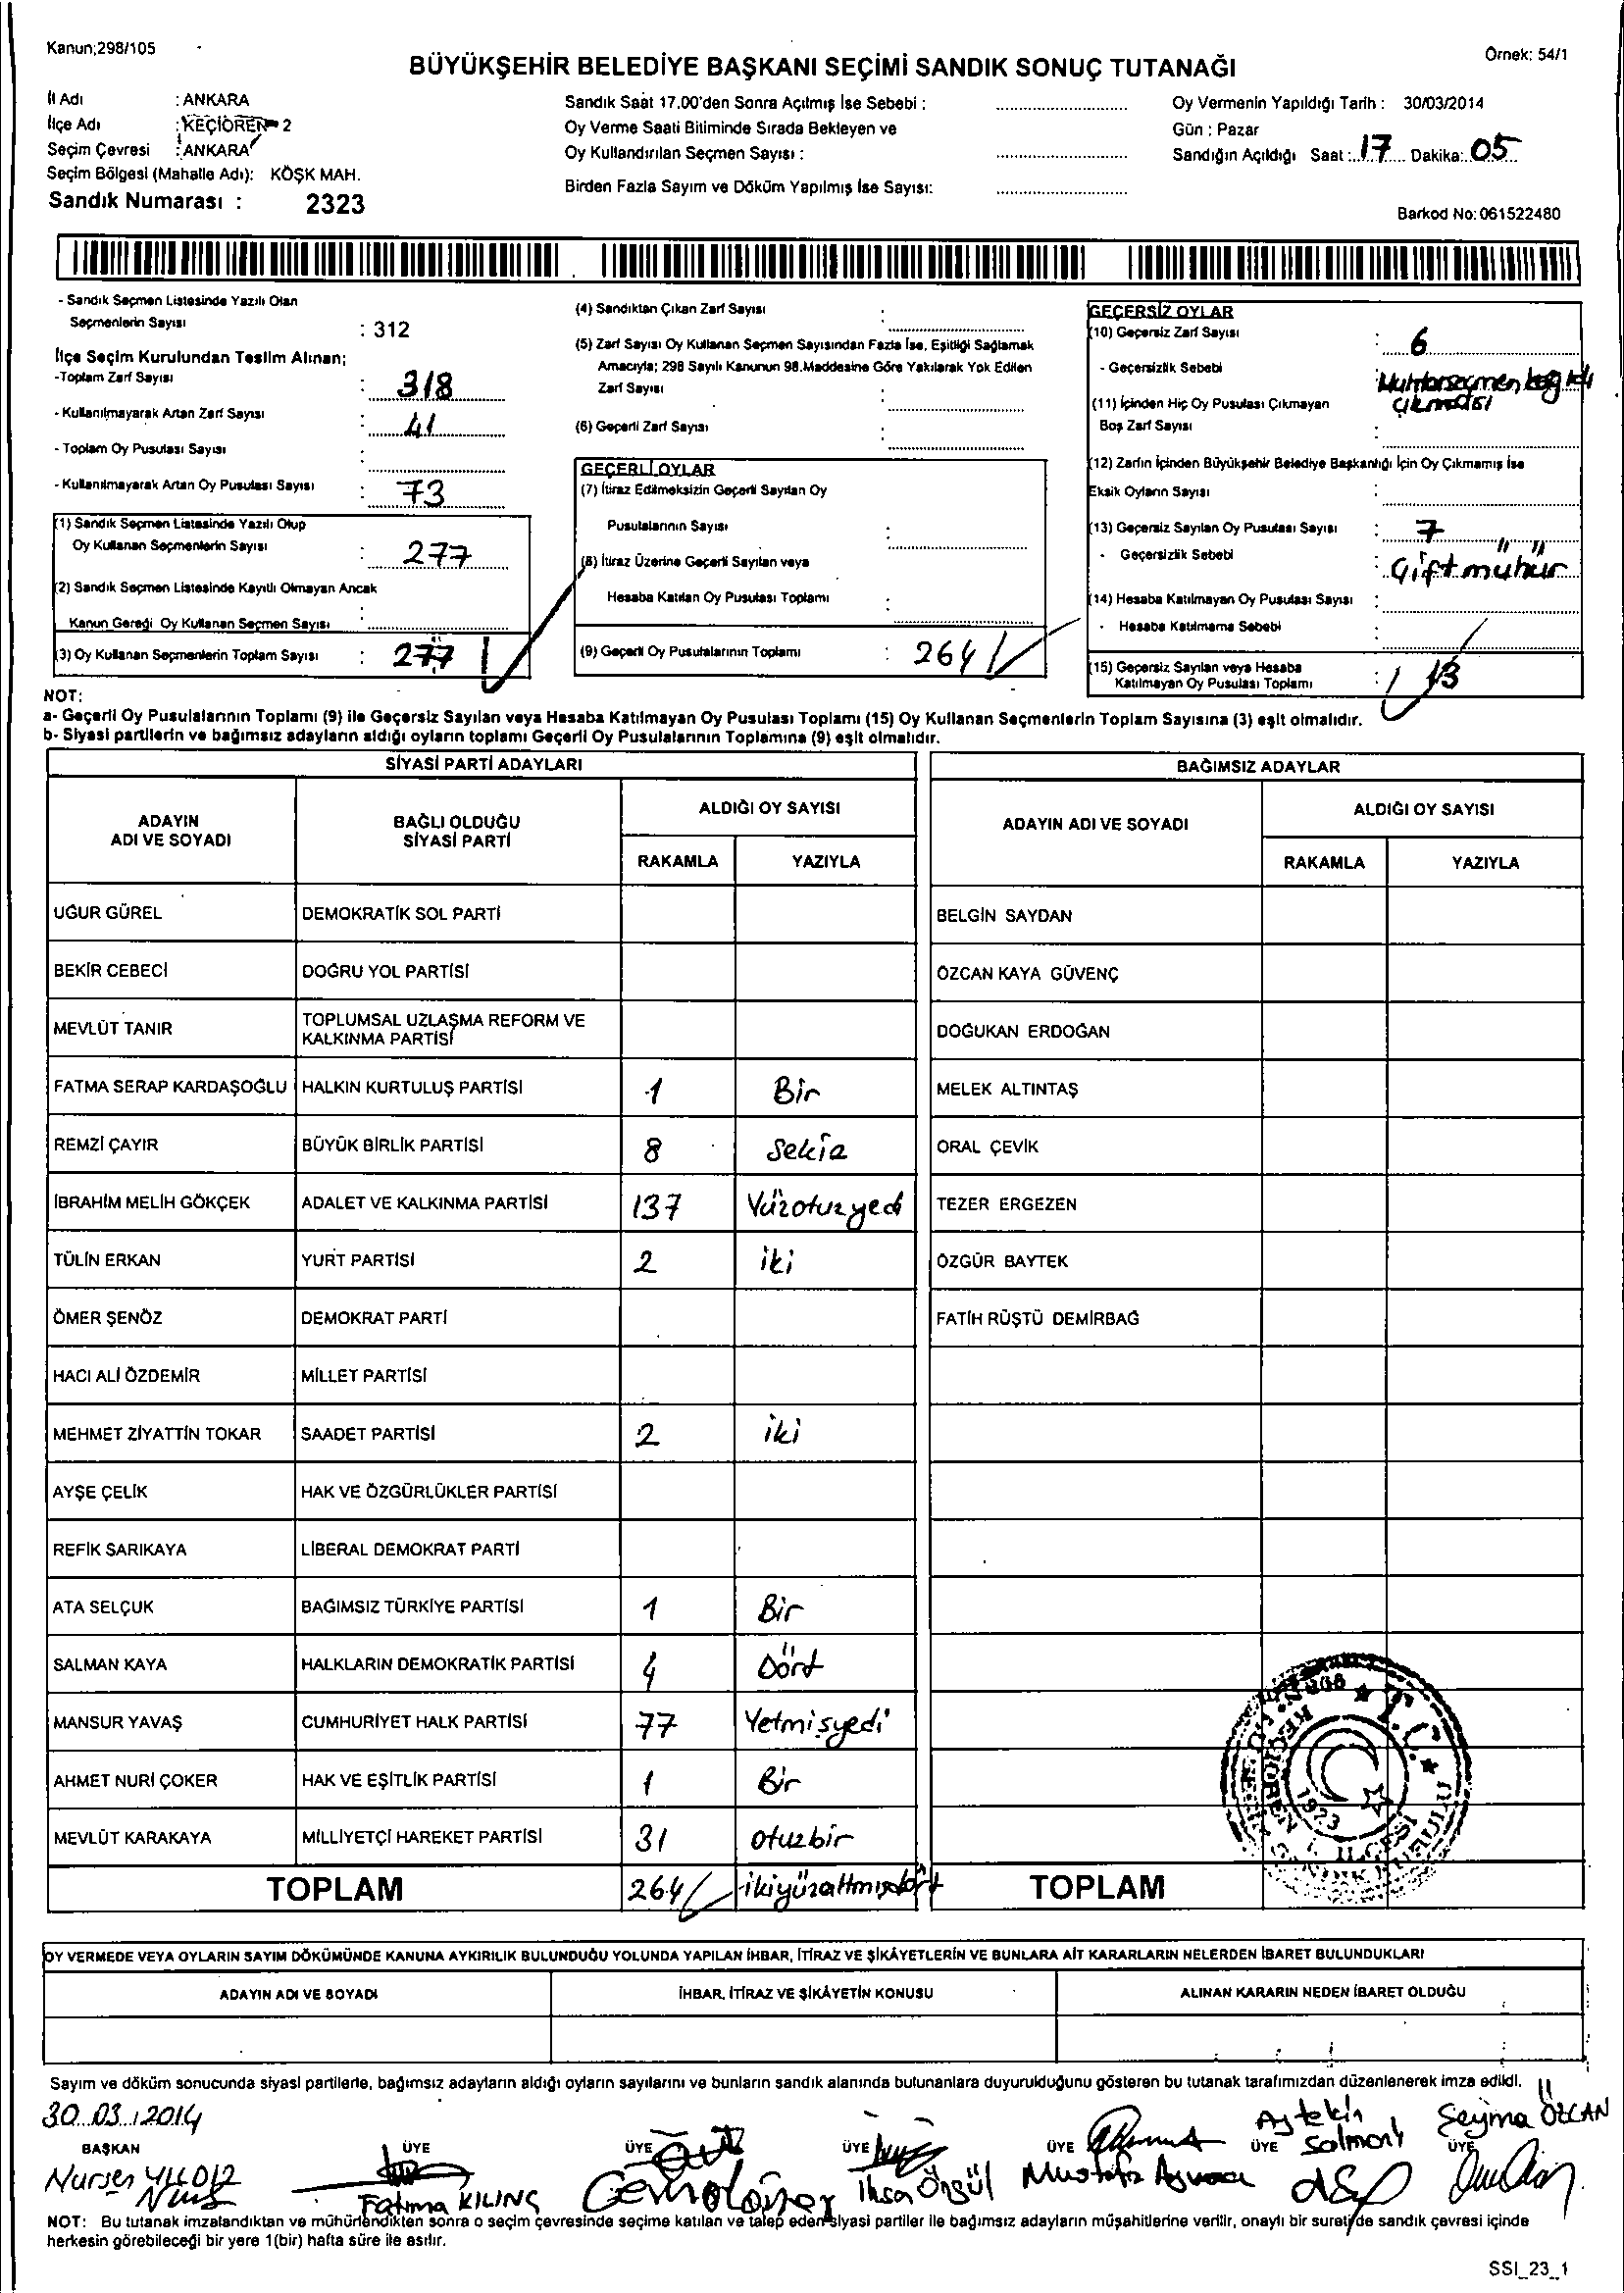 Kanun;298/105
Örnek: 54/1
BÜYÜKŞEHİR BELEDİYE BAŞKANI SEÇİMİ SANDIK SONUÇ TUTANAĞI
İl Adı : ANKARA
İlçe Adı : KEÇİÖREN 2
Seçim Çevresi : ANKARA
Seçim Bölgesi (Mahalle Adı): KÖŞK MAH.
Sandık Numarası : 2323
Sandık Saat 17.00'den Sonra Açılmış İse Sebebi :
Oy Verme Saati Bitiminde Sırada Bekleyen ve
Oy Kullandırılan Seçmen Sayısı :
Birden Fazla Sayım ve Döküm Yapılmış İse Sayısı:
Oy Vermenin Yapıldığı Tarih : 30/03/2014
Gün : Pazar
Sandığın Açıldığı Saat : 17 Dakika: 05
Barkod No: 061522480
- Sandık Seçmen Listesinde Yazılı Olan
Seçmenlerin Sayısı : 312
İlçe Seçim Kurulundan Teslim Alınan;
-Toplam Zarf Sayısı : 318
- Kullanılmayarak Artan Zarf Sayısı : 41
- Toplam Oy Pusulası Sayısı :
- Kullanılmayarak Artan Oy Pusulası Sayısı : 73
(1) Sandık Seçmen Listesinde Yazılı Olup
Oy Kullanan Seçmenlerin Sayısı : 277
(2) Sandık Seçmen Listesinde Kayıtlı Olmayan Ancak
Kanun Gereği Oy Kullanan Seçmen Sayısı :
(3) Oy Kullanan Seçmenlerin Toplam Sayısı : 277
(4) Sandıktan Çıkan Zarf Sayısı :
(5) Zarf Sayısı Oy Kullanan Seçmen Sayısından Fazla İse, Eşitliği Sağlamak
Amacıyla; 298 Sayılı Kanunun 98.Maddesine Göre Yakılarak Yok Edilen
Zarf Sayısı :
(6) Geçerli Zarf Sayısı :
GEÇERLİ OYLAR
(7) İtiraz Edilmeksizin Geçerli Sayılan Oy
Pusulalarının Sayısı :
(8) İtiraz Üzerine Geçerli Sayılan veya
Hesaba Katılan Oy Pusulası Toplamı :
(9) Geçerli Oy Pusulalarının Toplamı : 264
GEÇERSİZ OYLAR
(10) Geçersiz Zarf Sayısı : 6
- Geçersizlik Sebebi : Muhtar seçmen kağıdı
çıkması
(11) İçinden Hiç Oy Pusulası Çıkmayan
Boş Zarf Sayısı :
(12) Zarfın İçinden Büyükşehir Belediye Başkanlığı İçin Oy Çıkmamış İse
Eksik Oyların Sayısı :
(13) Geçersiz Sayılan Oy Pusulası Sayısı : 7
- Geçersizlik Sebebi : Çift mühür
(14) Hesaba Katılmayan Oy Pusulası Sayısı :
- Hesaba Katılmama Sebebi :
(15) Geçersiz Sayılan veya Hesaba
Katılmayan Oy Pusulası Toplamı : 13
NOT:
a- Geçerli Oy Pusulalarının Toplamı (9) ile Geçersiz Sayılan veya Hesaba Katılmayan Oy Pusulası Toplamı (15) Oy Kullanan Seçmenlerin Toplam Sayısına (3) eşit olmalıdır.
b- Siyasi partilerin ve bağımsız adayların aldığı oyların toplamı Geçerli Oy Pusulalarının Toplamına (9) eşit olmalıdır.
SİYASİ PARTİ ADAYLARI
ADAYIN
ADI VE SOYADI
BAĞLI OLDUĞU
SİYASİ PARTİ
ALDIĞI OY SAYISI
RAKAMLA YAZIYLA
UĞUR GÜREL DEMOKRATİK SOL PARTİ
BEKİR CEBECİ DOĞRU YOL PARTİSİ
MEVLÜT TANIR TOPLUMSAL UZLAŞMA REFORM VE
KALKINMA PARTİSİ
FATMA SERAP KARDAŞOĞLU HALKIN KURTULUŞ PARTİSİ 1 Bir
REMZİ ÇAYIR BÜYÜK BİRLİK PARTİSİ 8 Sekiz
İBRAHİM MELİH GÖKÇEK ADALET VE KALKINMA PARTİSİ 137 Yüzotuzyedi
TÜLİN ERKAN YURT PARTİSİ 2 iki
ÖMER ŞENÖZ DEMOKRAT PARTİ
HACI ALİ ÖZDEMİR MİLLET PARTİSİ
MEHMET ZİYATTİN TOKAR SAADET PARTİSİ 2 iki
AYŞE ÇELİK HAK VE ÖZGÜRLÜKLER PARTİSİ
REFİK SARIKAYA LİBERAL DEMOKRAT PARTİ
ATA SELÇUK BAĞIMSIZ TÜRKİYE PARTİSİ 1 Bir
SALMAN KAYA HALKLARIN DEMOKRATİK PARTİSİ 4 Dört
MANSUR YAVAŞ CUMHURİYET HALK PARTİSİ 77 Yetmişyedi
AHMET NURİ ÇOKER HAK VE EŞİTLİK PARTİSİ 1 Bir
MEVLÜT KARAKAYA MİLLİYETÇİ HAREKET PARTİSİ 31 otuzbir
TOPLAM 264 ikiyüzaltmışdört
BAĞIMSIZ ADAYLAR
ADAYIN ADI VE SOYADI
ALDIĞI OY SAYISI
RAKAMLA YAZIYLA
BELGİN SAYDAN
ÖZCAN KAYA GÜVENÇ
DOĞUKAN ERDOĞAN
MELEK ALTINTAŞ
ORAL ÇEVİK
TEZER ERGEZEN
ÖZGÜR BAYTEK
FATİH RÜŞTÜ DEMİRBAĞ
TOPLAM
T.C.
KEÇİÖREN
İLÇESİ
1923
OY VERMEDE VEYA OYLARIN SAYIM DÖKÜMÜNDE KANUNA AYKIRILIK BULUNDUĞU YOLUNDA YAPILAN İHBAR, İTİRAZ VE ŞİKÂYETLERİN VE BUNLARA AİT KARARLARIN NELERDEN İBARET BULUNDUKLARI
ADAYIN ADI VE SOYADI
İHBAR, İTİRAZ VE ŞİKÂYETİN KONUSU
ALINAN KARARIN NEDEN İBARET OLDUĞU
Sayım ve döküm sonucunda siyasi partilerle, bağımsız adayların aldığı oyların sayılarını ve bunların sandık alanında bulunanlara duyurulduğunu gösteren bu tutanak tarafımızdan düzenlenerek imza edildi.
30.03.2014
BAŞKAN ÜYE ÜYE ÜYE ÜYE ÜYE ÜYE
Nurşen YILDIZ
Fatma KILINÇ
Cemal
İhsan Öngül
Mustafa
Aytekin
Şeyma ÖZCAN
NOT: Bu tutanak imzalandıktan ve mühürlendikten sonra o seçim çevresinde seçime katılan ve talep eden siyasi partiler ile bağımsız adayların müşahitlerine verilir, onaylı bir sureti de sandık çevresi içinde
herkesin görebileceği bir yere 1(bir) hafta süre ile asılır.
SSI_23_1